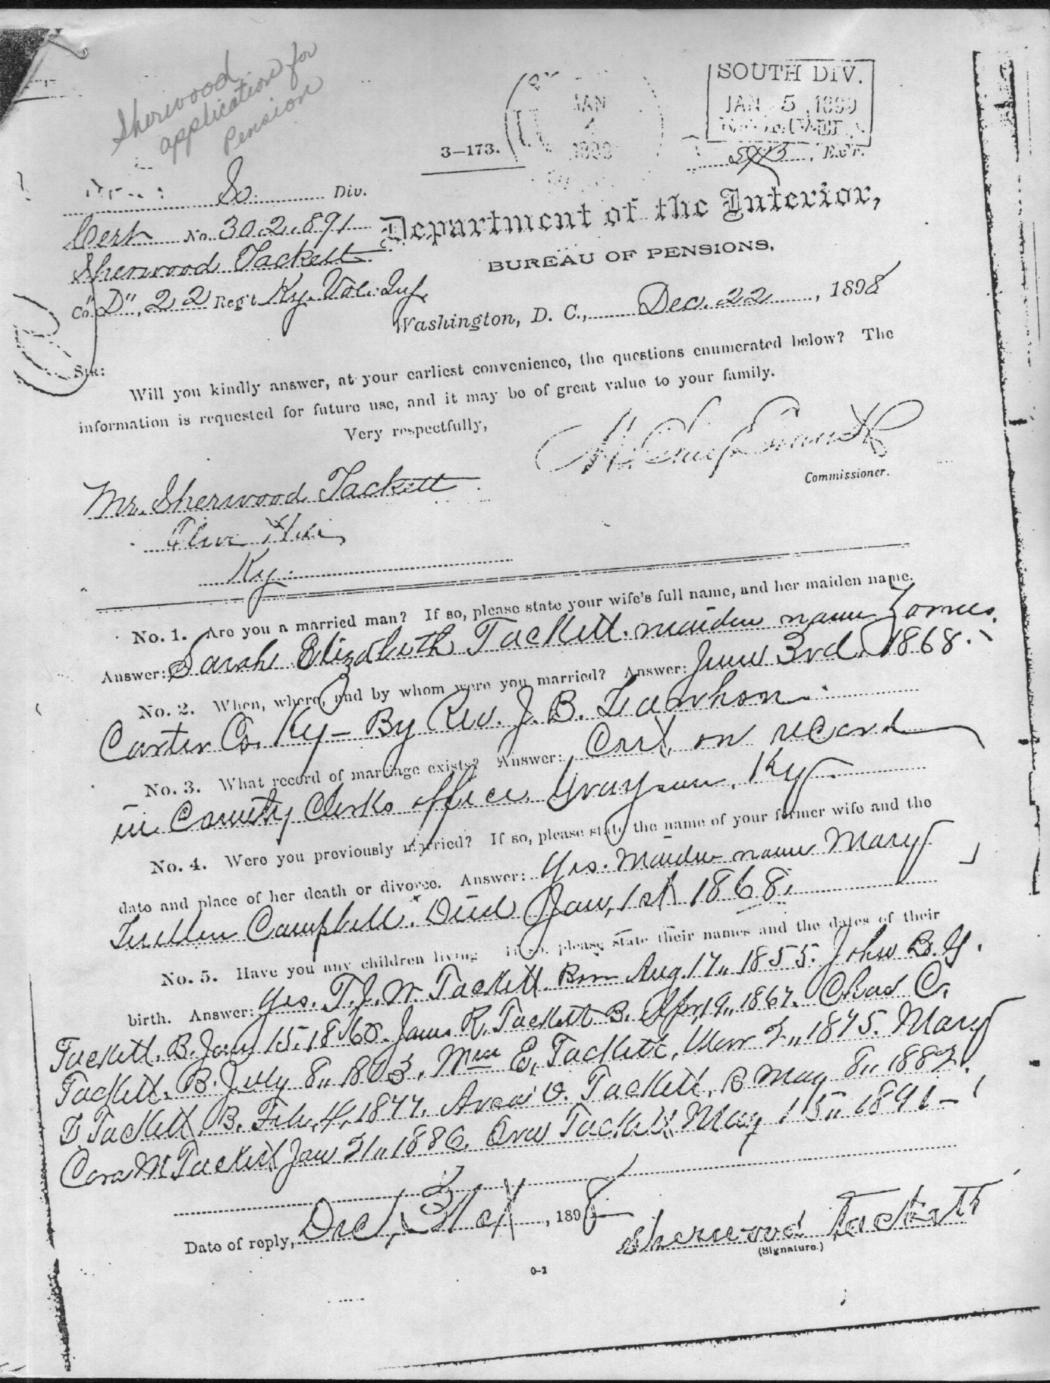 Sherwood
application for
Pension
SOUTH DIV.
JAN 5 1899
JAN
4
3—173.
Ex'r.
So. Div.
Cert No. 302,891
Sherwood Tackett
Co. "D", 22 Reg't Ky. Vol. Inf.
Department of the Interior,
BUREAU OF PENSIONS,
Washington, D. C., Dec. 22, 1898
SIR:
Will you kindly answer, at your earliest convenience, the questions enumerated below? The
information is requested for future use, and it may be of great value to your family.
Very respectfully,
Commissioner.
Mr. Sherwood Tackett
Ky.
No. 1. Are you a married man? If so, please state your wife's full name, and her maiden name.
Answer: Sarah Elizabeth Tackett. maiden name
No. 2. When, where, and by whom were you married? Answer: June 3rd. 1868.
Carter Co. Ky — By Rev. J. B. Lawhon
No. 3. What record of marriage exists? Answer: on record
in County Clerks office, Grayson, Ky.
No. 4. Were you previously married? If so, please state the name of your former wife and the
date and place of her death or divorce. Answer: Yes. Maiden name Mary
Campbell. Died Jan, 1st 1868.
No. 5. Have you any children living please state their names and the dates of their
birth. Answer: Yes. T. J. W. Tackett. Born Aug. 17" 1855. John B. Y.
Tackett. B. Jany 15. 1860. James R. Tackett B. Apr 19" 1867. Chas C.
Tackett. B. July 8" Wm E. Tackett, 1875. Mary
Tackett B. Feb, 4, 1877. V. Tackett, B May 8" 1882.
Cora M Tackett Jan 21" 1886. Tackett May 15" 1891 —
Date of reply, Dec, 31st, 1898
Sherwood Tackett
(Signature.)
0-1